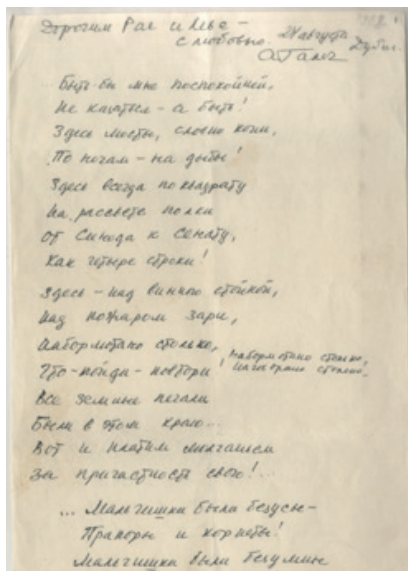 Дорогим Рае и Лёве –
с любовью. 24 августа
Дубна.
АГалич
Быть бы мне поспокойней,
Не казаться – а быть!
Здесь мосты, словно кони,
По ночам – на дыбы!
Здесь всегда по квадрату
На рассвете полки
От Синода к Сенату,
Как четыре строки!
Здесь – над винною стойкой,
Над пожаром зари,
Набормотано столько,
Что – пойди – повтори!
Набормотано столько,
Наговорено столько.
Все земные печали
Были в этом краю...
Вот и платим молчаньем
За причастность свою!..
... Мальчишки были безусы –
Прапоры и корнеты!
Мальчишки были безумны